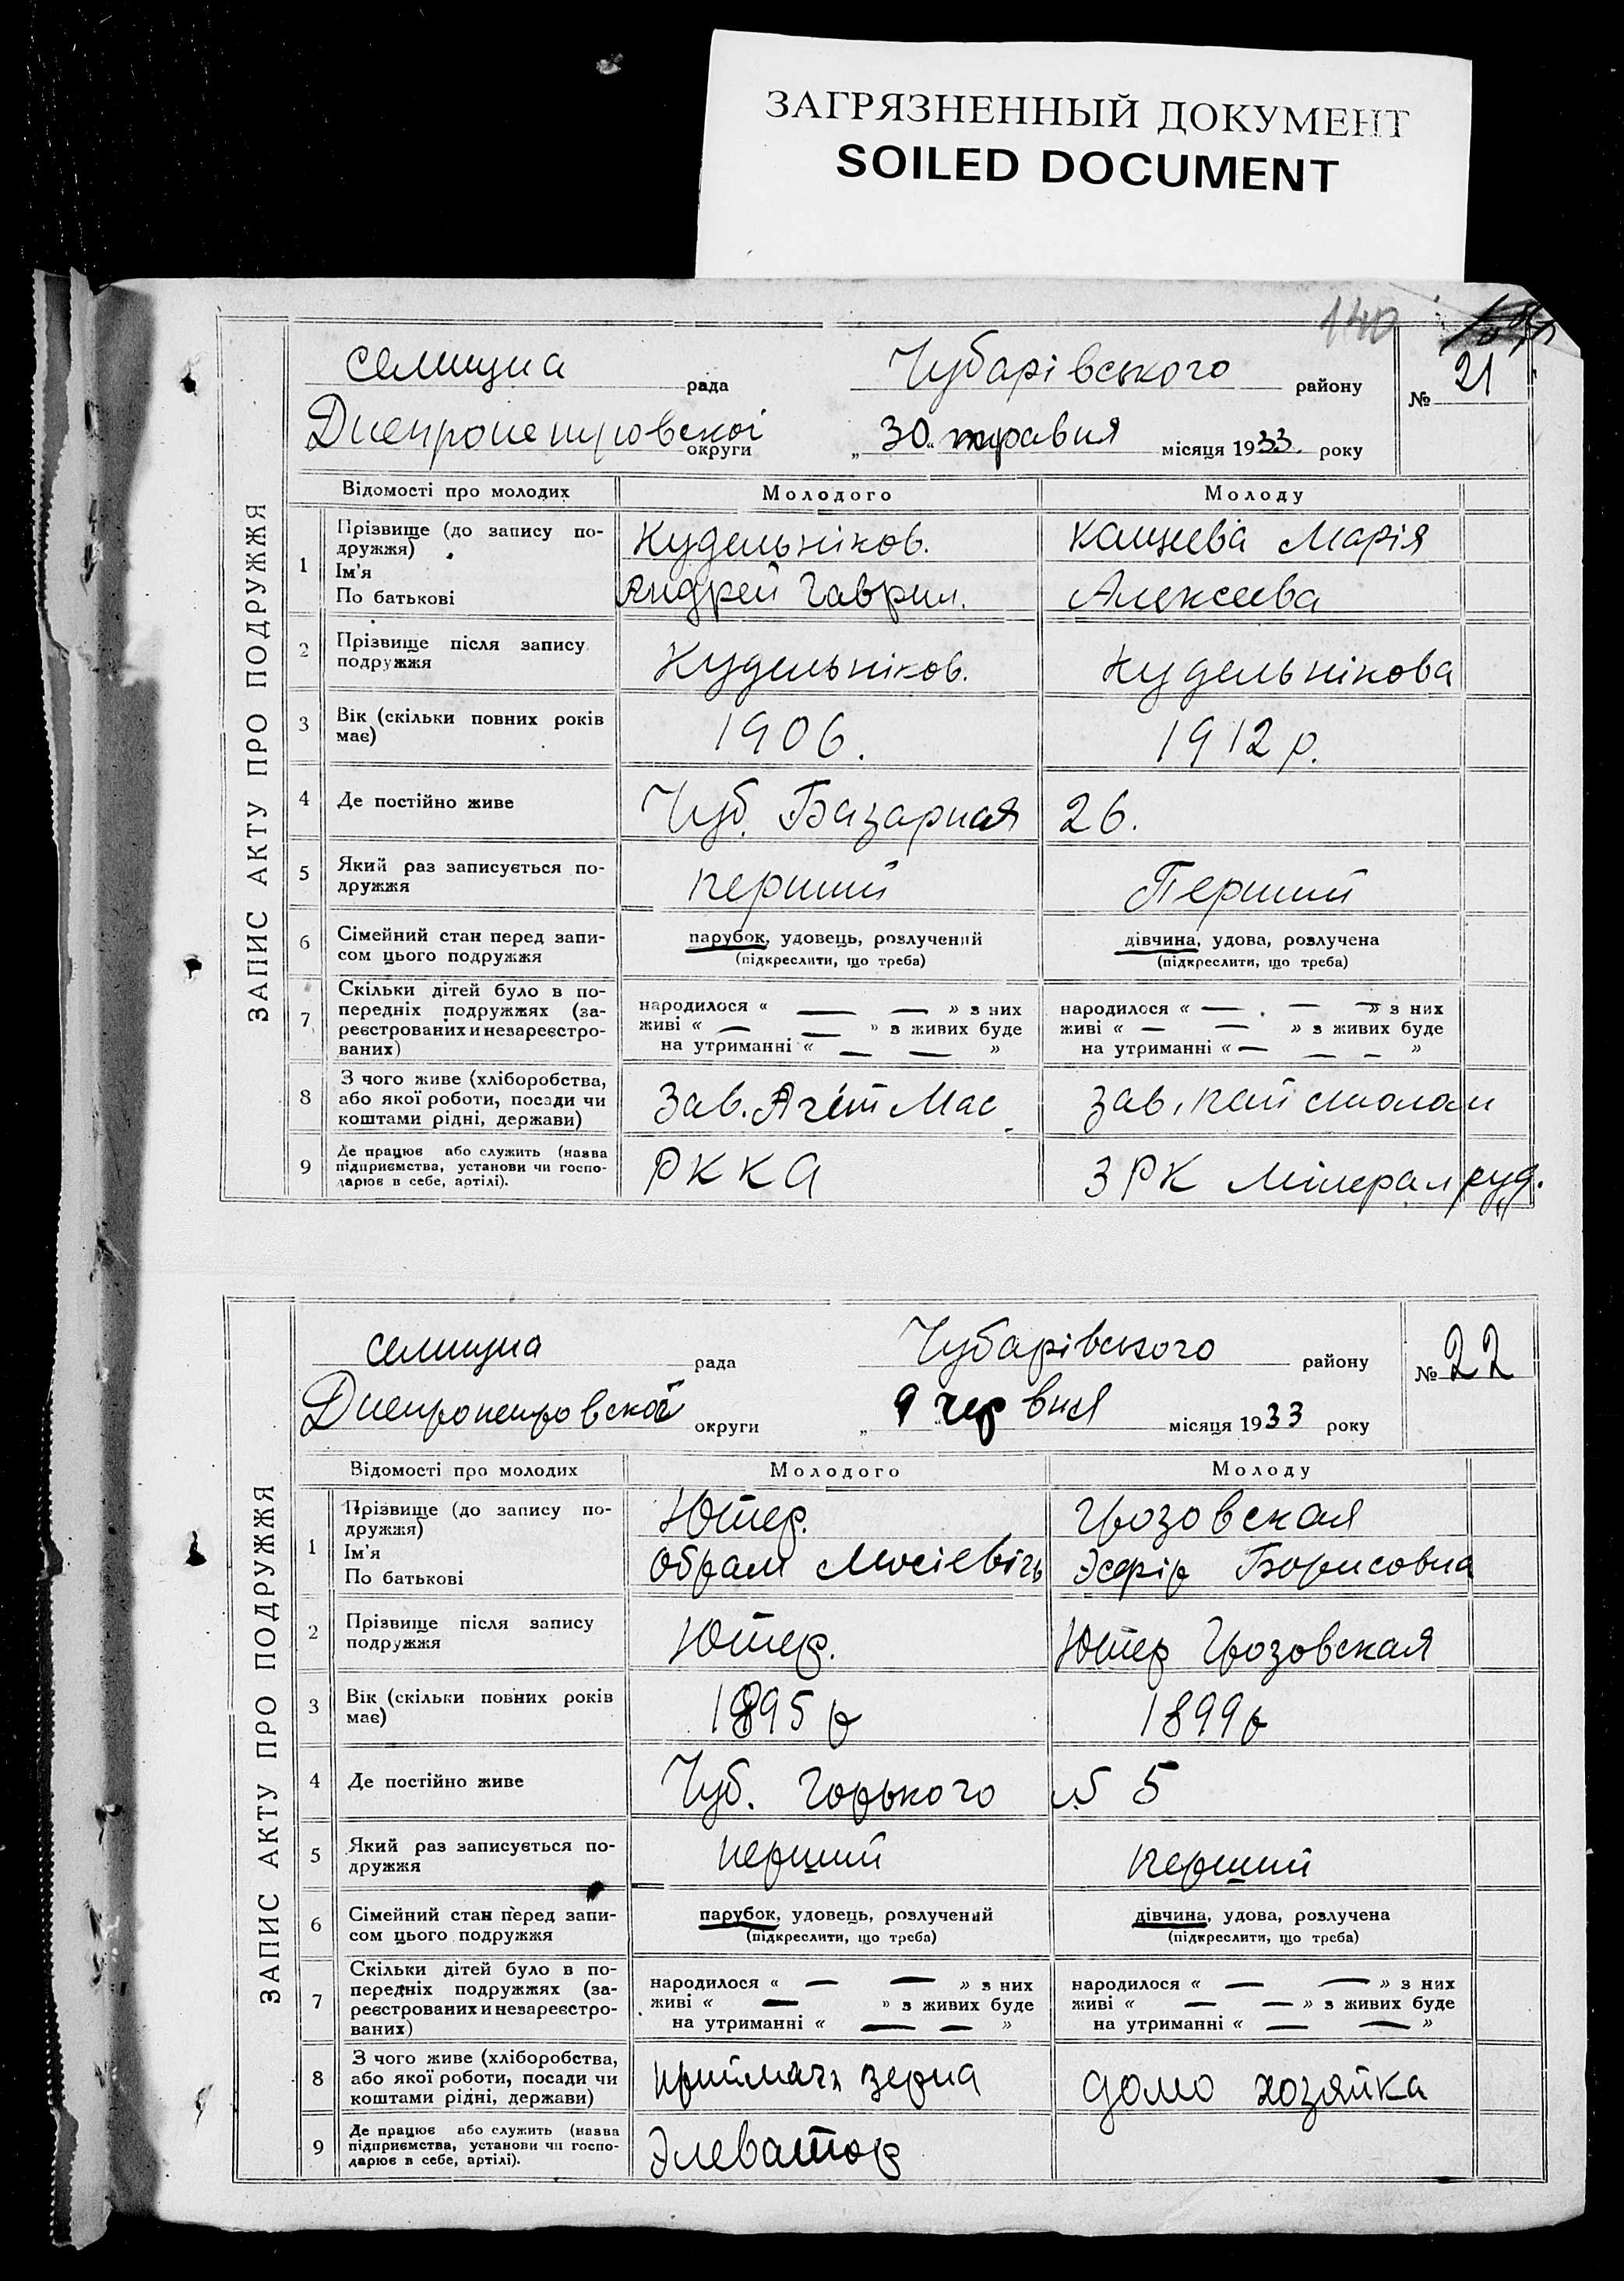 ЗАГРЯЗНЕННЫЙ ДОКУМЕНТ
SOILED DOCUMENT
140
ЗАПИС АКТУ ПРО ПОДРУЖЖЯ
селищна рада Чубарівського району № 21
Днепропетровскоі округи „30“ травня місяця 1933. року
Відомості про молодих Молодого Молоду
1 Прізвище (до запису по-
дружжя)
Ім'я
По батькові
Кудельніков. Кащеева Марія
Андрей Гаврил. Алексеева
2 Прізвище після запису
подружжя
Кудельніков. Кудельнікова
3 Вік (скільки повних років
має)
1906. 1912 р.
4 Де постійно живе Чуб. Базарная 26.
5 Який раз записується по-
дружжя
перший Перший
6 Сімейний стан перед запи-
сом цього подружжя
парубок, удовець, розлучений дівчина, удова, розлучена
(підкреслити, що треба) (підкреслити, що треба)
7 Скільки дітей було в по-
передніх подружжях (за-
реєстрованих и незареєстро-
ваних)
народилося « — — » з них народилося « — — — » з них
живі « — — » з живих буде живі « — — » з живих буде
на утриманні « — — » на утриманні « — — — »
8 З чого живе (хліборобства,
або якої роботи, посади чи
коштами рідні, держави)
Зав. Агіт Мас. зав,
9 Де працює або служить (назва
підприємства, установи чи госпо-
дарює в себе, артілі).
РККА ЗРК Мінералруд.
ЗАПИС АКТУ ПРО ПОДРУЖЖЯ
селищна рада Чубарівського району № 22
Днепропетровскоі округи „9 червня місяця 1933 року
Відомості про молодих Молодого Молоду
1 Прізвище (до запису по-
дружжя)
Ім'я
По батькові
Ютер. Грозовская
Обрам Мосієвічь Эсфір Борисовна
2 Прізвище після запису
подружжя
Ютер. Ютер Грозовская
3 Вік (скільки повних років
має)
1895 р 1899 р
4 Де постійно живе Чуб. Горького № 5
5 Який раз записується по-
дружжя
перший перший
6 Сімейний стан перед запи-
сом цього подружжя
парубок, удовець, розлучений дівчина, удова, розлучена
(підкреслити, що треба) (підкреслити, що треба)
7 Скільки дітей було в по-
передніх подружжях (за-
реєстрованих и незареєстро-
ваних)
народилося « — — » з них народилося « — — » з них
живі « — » з живих буде живі « — — » з живих буде
на утриманні « — — » на утриманні « — — »
8 З чого живе (хліборобства,
або якої роботи, посади чи
коштами рідні, держави)
приймачь зерна домо хозяйка
9 Де працює або служить (назва
підприємства, установи чи госпо-
дарює в себе, артілі).
Элеватор